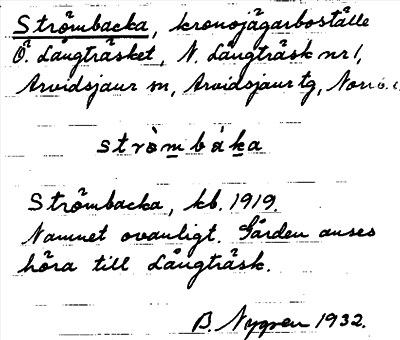 Strömbacka, kronojägarboställe
Ö. Långträsket, N. Långträsk nr 1,
Arvidsjaur sn, Arvidsjaur tg, Norrb. l.
stròmbáka
Strömbacka, kb. 1919.
Namnet ovanligt. Gården anses
höra till Långträsk.
B. Nygren 1932.